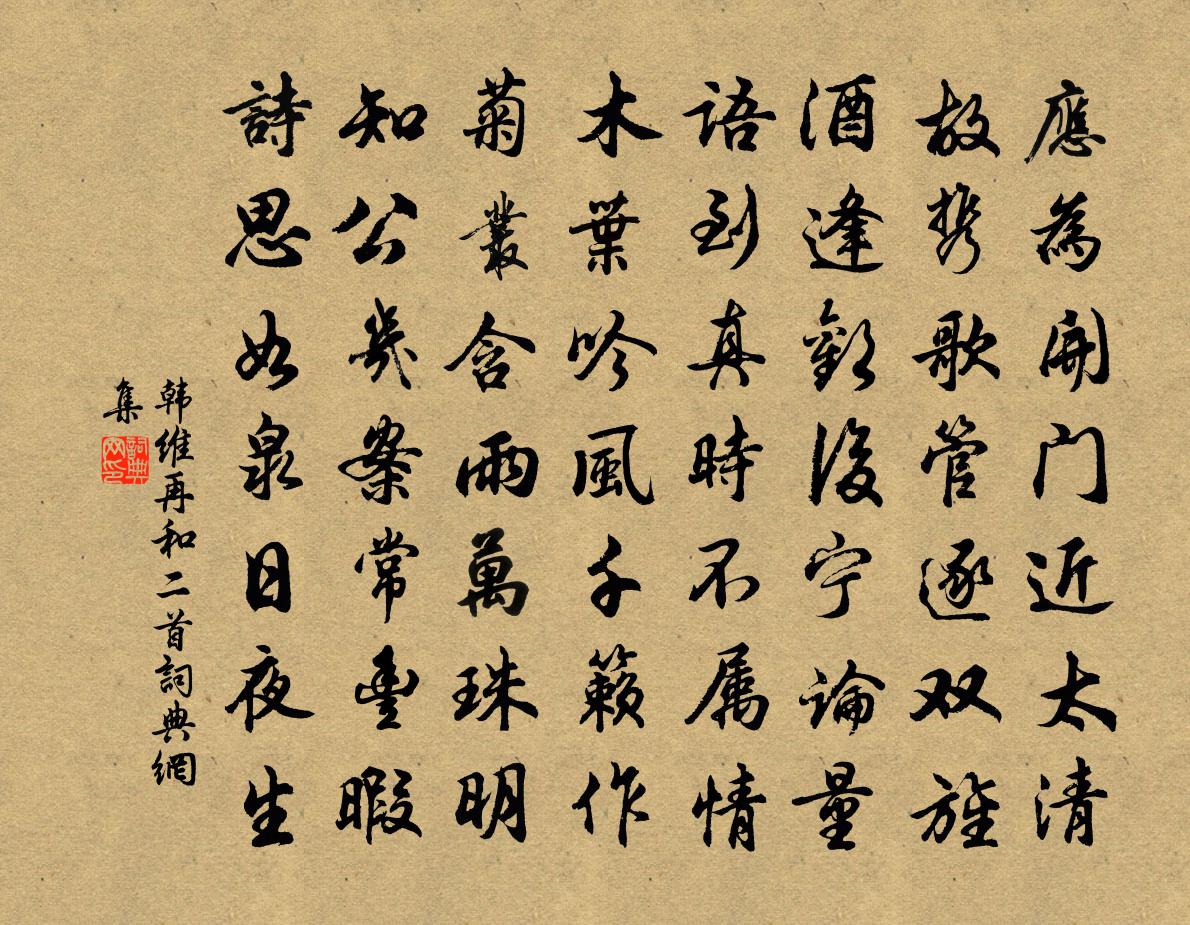 應為開門近太清
故携歌管逐双旌
酒逢歡後宁論量
語到真時不属情
木葉吟風千籟作
菊叢含雨萬珠明
知公幾案常豊暇
詩思如泉日夜生
韩維再和二首詞典網
集
詞典网印